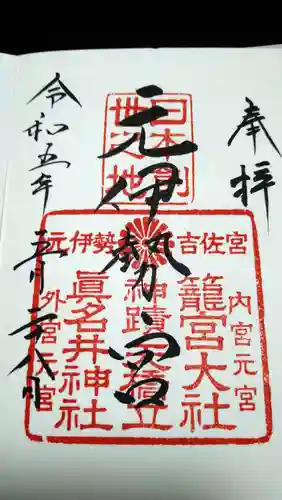 奉拝
日本創
世之地
元伊勢宮
元伊勢
吉佐宮
内宮元宮
籠宮大社
神蹟
天橋立
眞名井神社
外宮元宮
令和五年